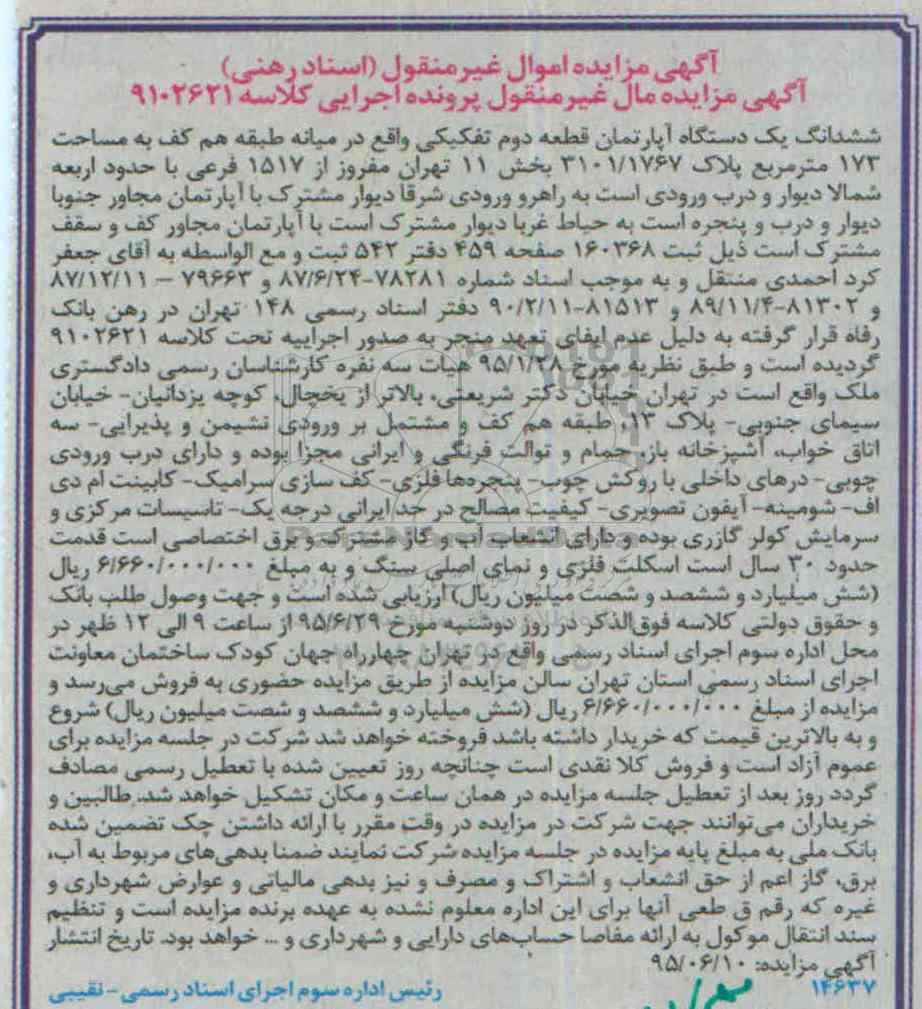 آگهی مزایده اموال غیرمنقول (اسناد رهنی)
آگهی مزایده مال غیرمنقول پرونده اجرایی کلاسه ۹۱۰۲۶۲۱
ششدانگ یک دستگاه آپارتمان قطعه دوم تفکیکی واقع در میانه طبقه هم کف به مساحت
۱۷۳ مترمربع پلاک ۳۱۰۱/۱۷۶۷ بخش ۱۱ تهران مفروز از ۱۵۱۷ فرعی با حدود اربعه
شمالا دیوار و درب ورودی است به راهرو ورودی شرقا دیوار مشترک با آپارتمان مجاور جنوبا
دیوار و درب و پنجره است به حیاط غربا دیوار مشترک است با آپارتمان مجاور کف و سقف
مشترک است ذیل ثبت ۱۶۰۳۶۸ صفحه ۴۵۹ دفتر ۵۴۲ ثبت و مع الواسطه به آقای جعفر
کرد احمدی منتقل و به موجب اسناد شماره ۷۸۲۸۱-۸۷/۶/۲۴ و ۷۹۶۶۳ – ۸۷/۱۲/۱۱
و ۸۱۳۰۲-۸۹/۱۱/۴ و ۸۱۵۱۳-۹۰/۲/۱۱ دفتر اسناد رسمی ۱۴۸ تهران در رهن بانک
رفاه قرار گرفته به دلیل عدم ایفای تعهد منجر به صدور اجراییه تحت کلاسه ۹۱۰۲۶۲۱
گردیده است و طبق نظریه مورخ ۹۵/۱/۲۸ هیات سه نفره کارشناسان رسمی دادگستری
ملک واقع است در تهران خیابان دکتر شریعتی، بالاتر از یخچال، کوچه یزدانیان- خیابان
سیمای جنوبی- پلاک ۱۳، طبقه هم کف و مشتمل بر ورودی نشیمن و پذیرایی- سه
اتاق خواب، آشپزخانه باز، حمام و توالت فرنگی و ایرانی مجزا بوده و دارای درب ورودی
چوبی- درهای داخلی با روکش چوب- پنجره‌ها فلزی- کف سازی سرامیک- کابینت ام دی
اف- شومینه- آیفون تصویری- کیفیت مصالح در حد ایرانی درجه یک- تاسیسات مرکزی و
سرمایش کولر گازری بوده و دارای انشعاب آب و گاز مشترک و برق اختصاصی است قدمت
حدود ۳۰ سال است اسکلت فلزی و نمای اصلی سنگ و به مبلغ ۶/۶۶۰/۰۰۰/۰۰۰ ریال
(شش میلیارد و ششصد و شصت میلیون ریال) ارزیابی شده است و جهت وصول طلب بانک
و حقوق دولتی کلاسه فوق‌الذکر در روز دوشنبه مورخ ۹۵/۶/۲۹ از ساعت ۹ الی ۱۲ ظهر در
محل اداره سوم اجرای اسناد رسمی واقع در تهران چهارراه جهان کودک ساختمان معاونت
اجرای اسناد رسمی استان تهران سالن مزایده از طریق مزایده حضوری به فروش می‌رسد و
مزایده از مبلغ ۶/۶۶۰/۰۰۰/۰۰۰ ریال (شش میلیارد و ششصد و شصت میلیون ریال) شروع
و به بالاترین قیمت که خریدار داشته باشد فروخته خواهد شد شرکت در جلسه مزایده برای
عموم آزاد است و فروش کلا نقدی است چنانچه روز تعیین شده با تعطیل رسمی مصادف
گردد روز بعد از تعطیل جلسه مزایده در همان ساعت و مکان تشکیل خواهد شد. طالبین و
خریداران می‌توانند جهت شرکت در مزایده در وقت مقرر با ارائه داشتن چک تضمین شده
بانک ملی به مبلغ پایه مزایده در جلسه مزایده شرکت نمایند ضمنا بدهی‌های مربوط به آب،
برق، گاز اعم از حق انشعاب و اشتراک و مصرف و نیز بدهی مالیاتی و عوارض شهرداری و
غیره که رقم ق طعی آنها برای این اداره معلوم نشده به عهده برنده مزایده است و تنظیم
سند انتقال موکول به ارائه مفاصا حساب‌های دارایی و شهرداری و ... خواهد بود. تاریخ انتشار
آگهی مزایده: ۹۵/۰۶/۱۰
۱۴۶۳۷
رئیس اداره سوم اجرای اسناد رسمی - نقیبی